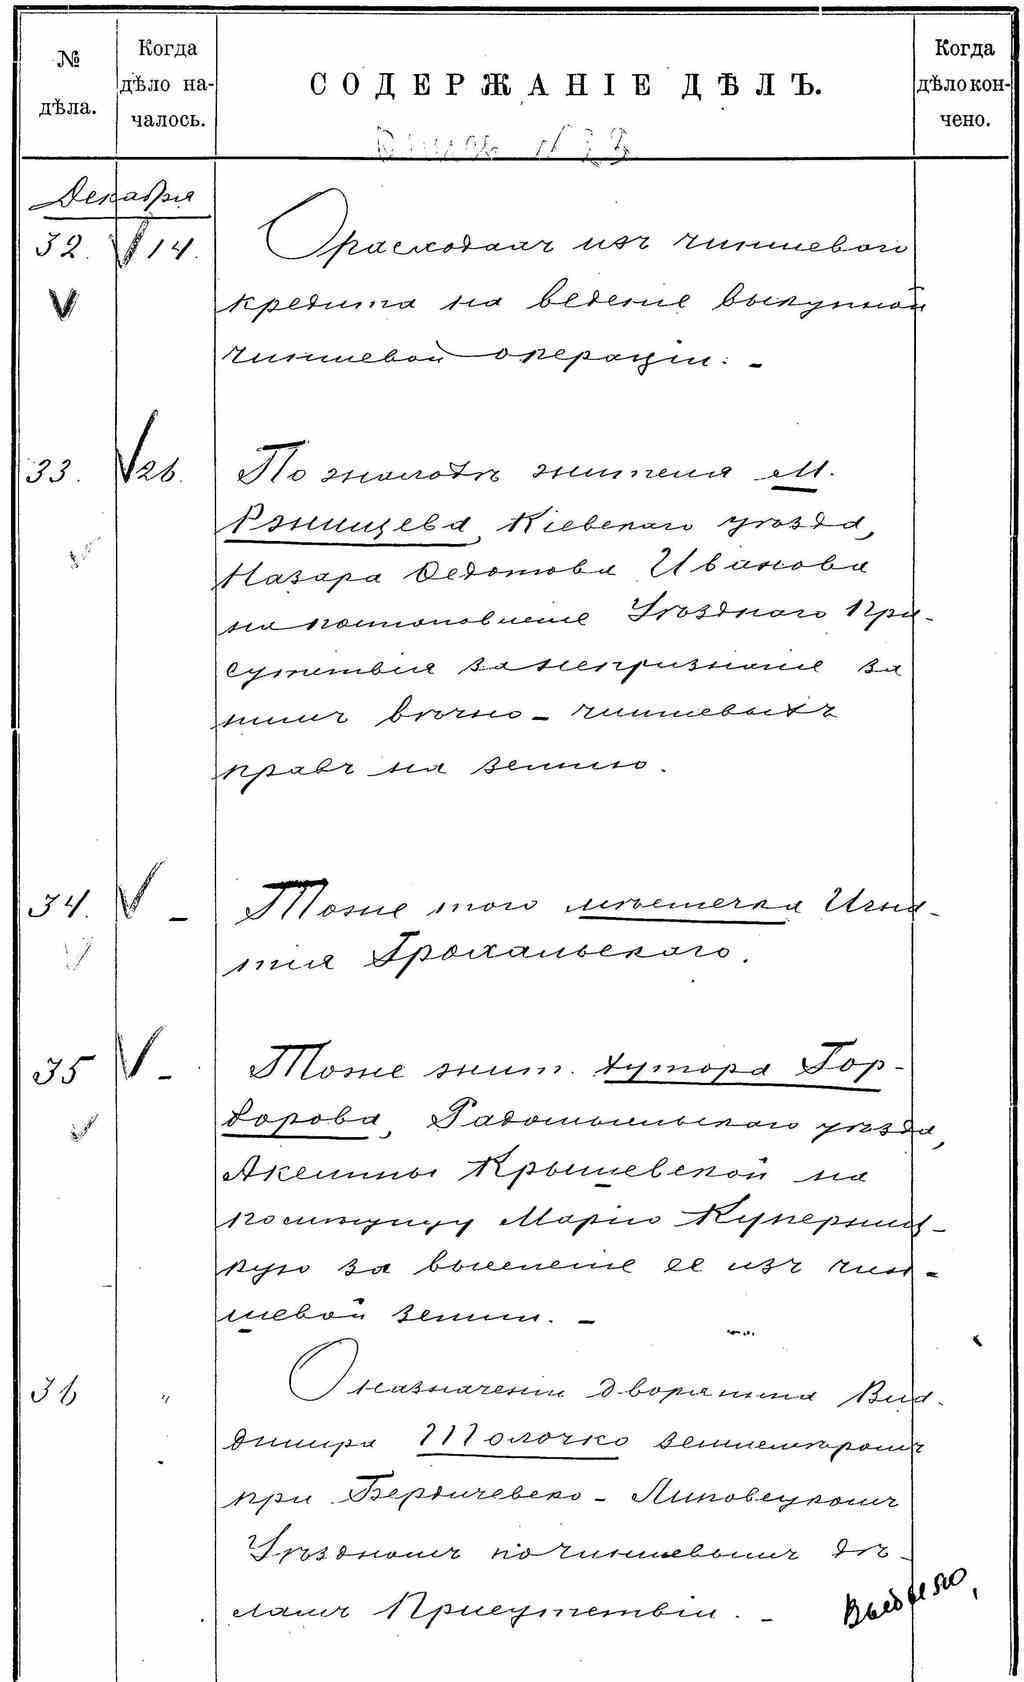 № дѣла.
Когда дѣло началось.
СОДЕРЖАНІЕ ДѢЛЪ.
Когда дѣло кончено.
Декабря
32. 14. О расходахъ изъ чиншеваго
кредита на веденіе выкупной
чиншевой операціи. -
33. 26. По жалобѣ жителя м.
Ржищева, Кіевскаго уѣзда,
Назара Федотова Иванова
на постановленіе Уѣзднаго При-
сутствія за непризнаніе за
нимъ вѣчно-чиншевыхъ
правъ на землю.
34. - Тоже того мѣстечка Игна-
тія Грохальскаго.
35 - Тоже жит. хутора Гор-
борова, Радомысльскаго уѣзда,
Аксиньи Крышевской на
помѣщицу Марію Куперниц-
кую за выселеніе ее изъ чин-
шевой земли. -
36 " О назначеніи дворянина Вла-
димира Толочко землемѣромъ
при Бердичевско-Липовецкомъ
Уѣздномъ по чиншевымъ дѣ-
ламъ Присутствіи. -